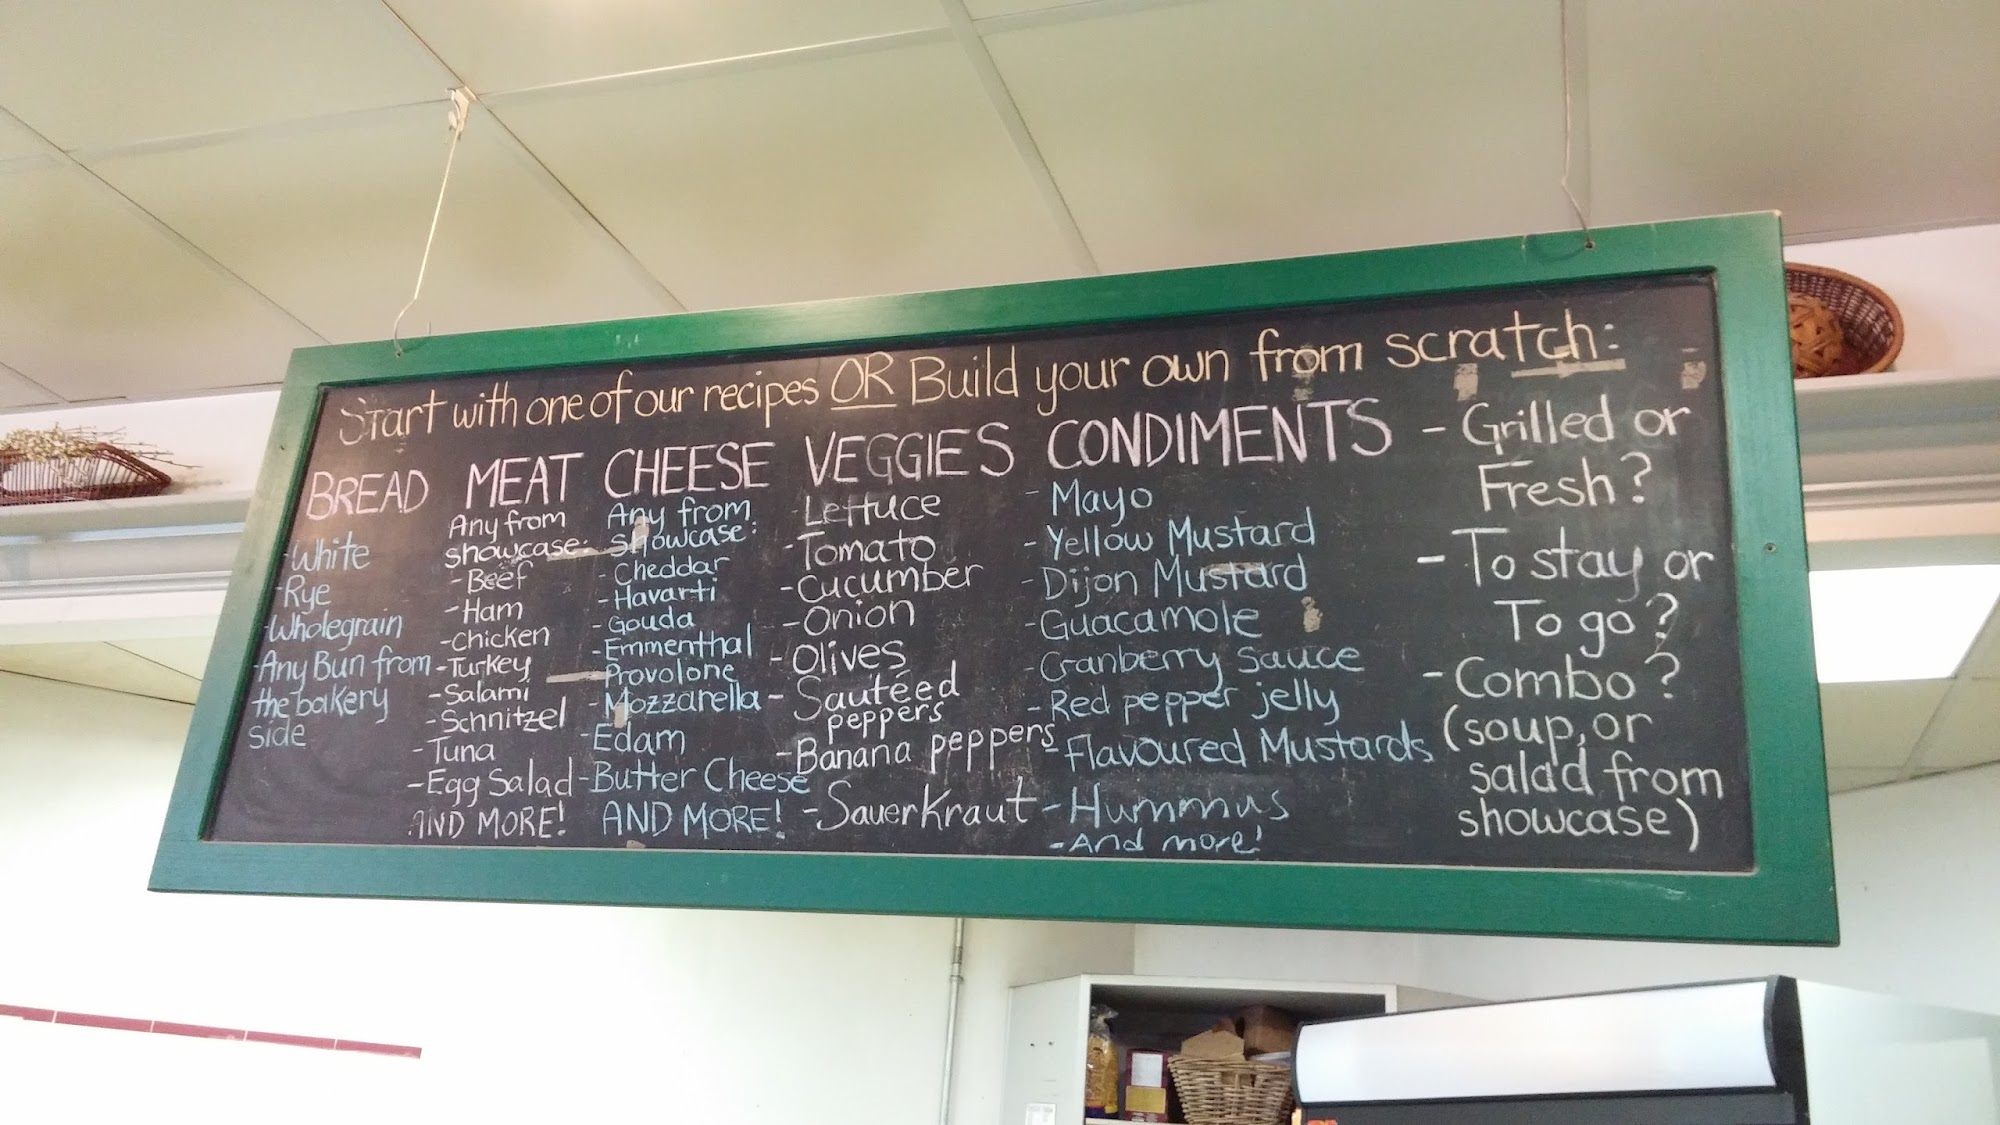 Start with one of our recipes OR Build your own from scratch:
BREAD
-White
-Rye
-Wholegrain
-Any Bun from
the bakery
side
MEAT
Any from
showcase:
-Beef
-Ham
-Chicken
-Turkey
-Salami
-Schnitzel
-Tuna
-Egg Salad
AND MORE!
CHEESE
Any from
showcase:
-Cheddar
-Havarti
-Gouda
-Emmenthal
-Provolone
-Mozzarella
-Edam
-Butter Cheese
AND MORE!
VEGGIES
-Lettuce
-Tomato
-Cucumber
-Onion
-Olives
-Sautéed
peppers
-Banana peppers
-Sauerkraut
CONDIMENTS
-Mayo
-Yellow Mustard
-Dijon Mustard
-Guacamole
-Cranberry sauce
-Red pepper jelly
-Flavoured Mustards
-Hummus
-And more!
-Grilled or
Fresh?
-To stay or
To go?
-Combo?
(soup, or
salad from
showcase)